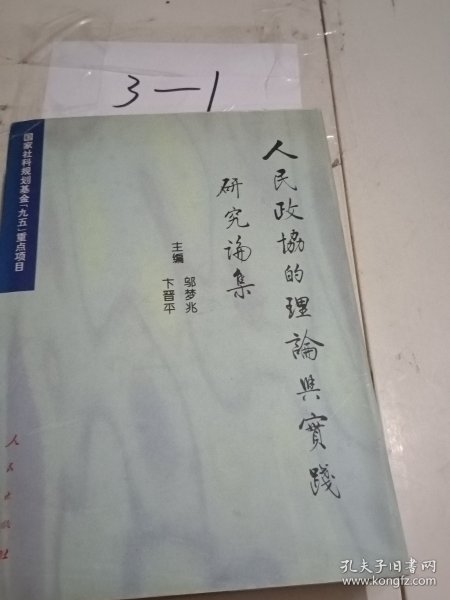 3—1
国家社科规划基金「九五」重点项目
人民政協的理論與實踐
研究論集
主编
邬梦兆
卞晋平
人民出版社
孔夫子旧书网
www.kongfz.com